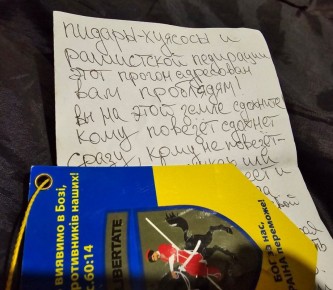 пидары-хуясосы и
рашистской педирации
этот прогон адресован
вам проблядям!
вы на этой земле сдохните
кому повезёт сдохнет
сразу, кому не повезёт-
или
и
виявимо в Бозі,
ротивників наших!
:60:14
LIBERTATE
Бог за нас,
РАЇНА переможе!